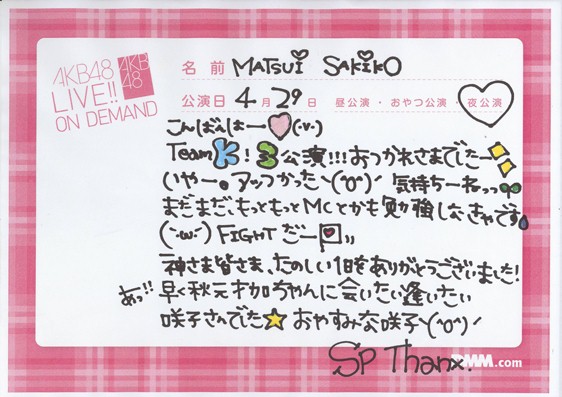 AKB48
LIVE!!
ON DEMAND
AKB
48
名前 MATSUI SAKIKO
公演日 4月29日 昼公演・おやつ公演・夜公演
こんばんはー(·v·)
Team K!3公演!!!おつかれさまでしたー
いやー。アツかったヽ(^o^)ノ 気持ちーねっっ
まだまだ、もっともっとMCとかも勉強しないきゃです
(·̄ω·̄) FIGHTだー
神さま皆さま、たのしい1日をありがとうございました!
あっ!! 早く秋元才加ちゃんに会いたい逢いたい
咲子さんでした☆ おやすみな咲子ヽ(^o^)ノ
SP Thanx.
DMM.com